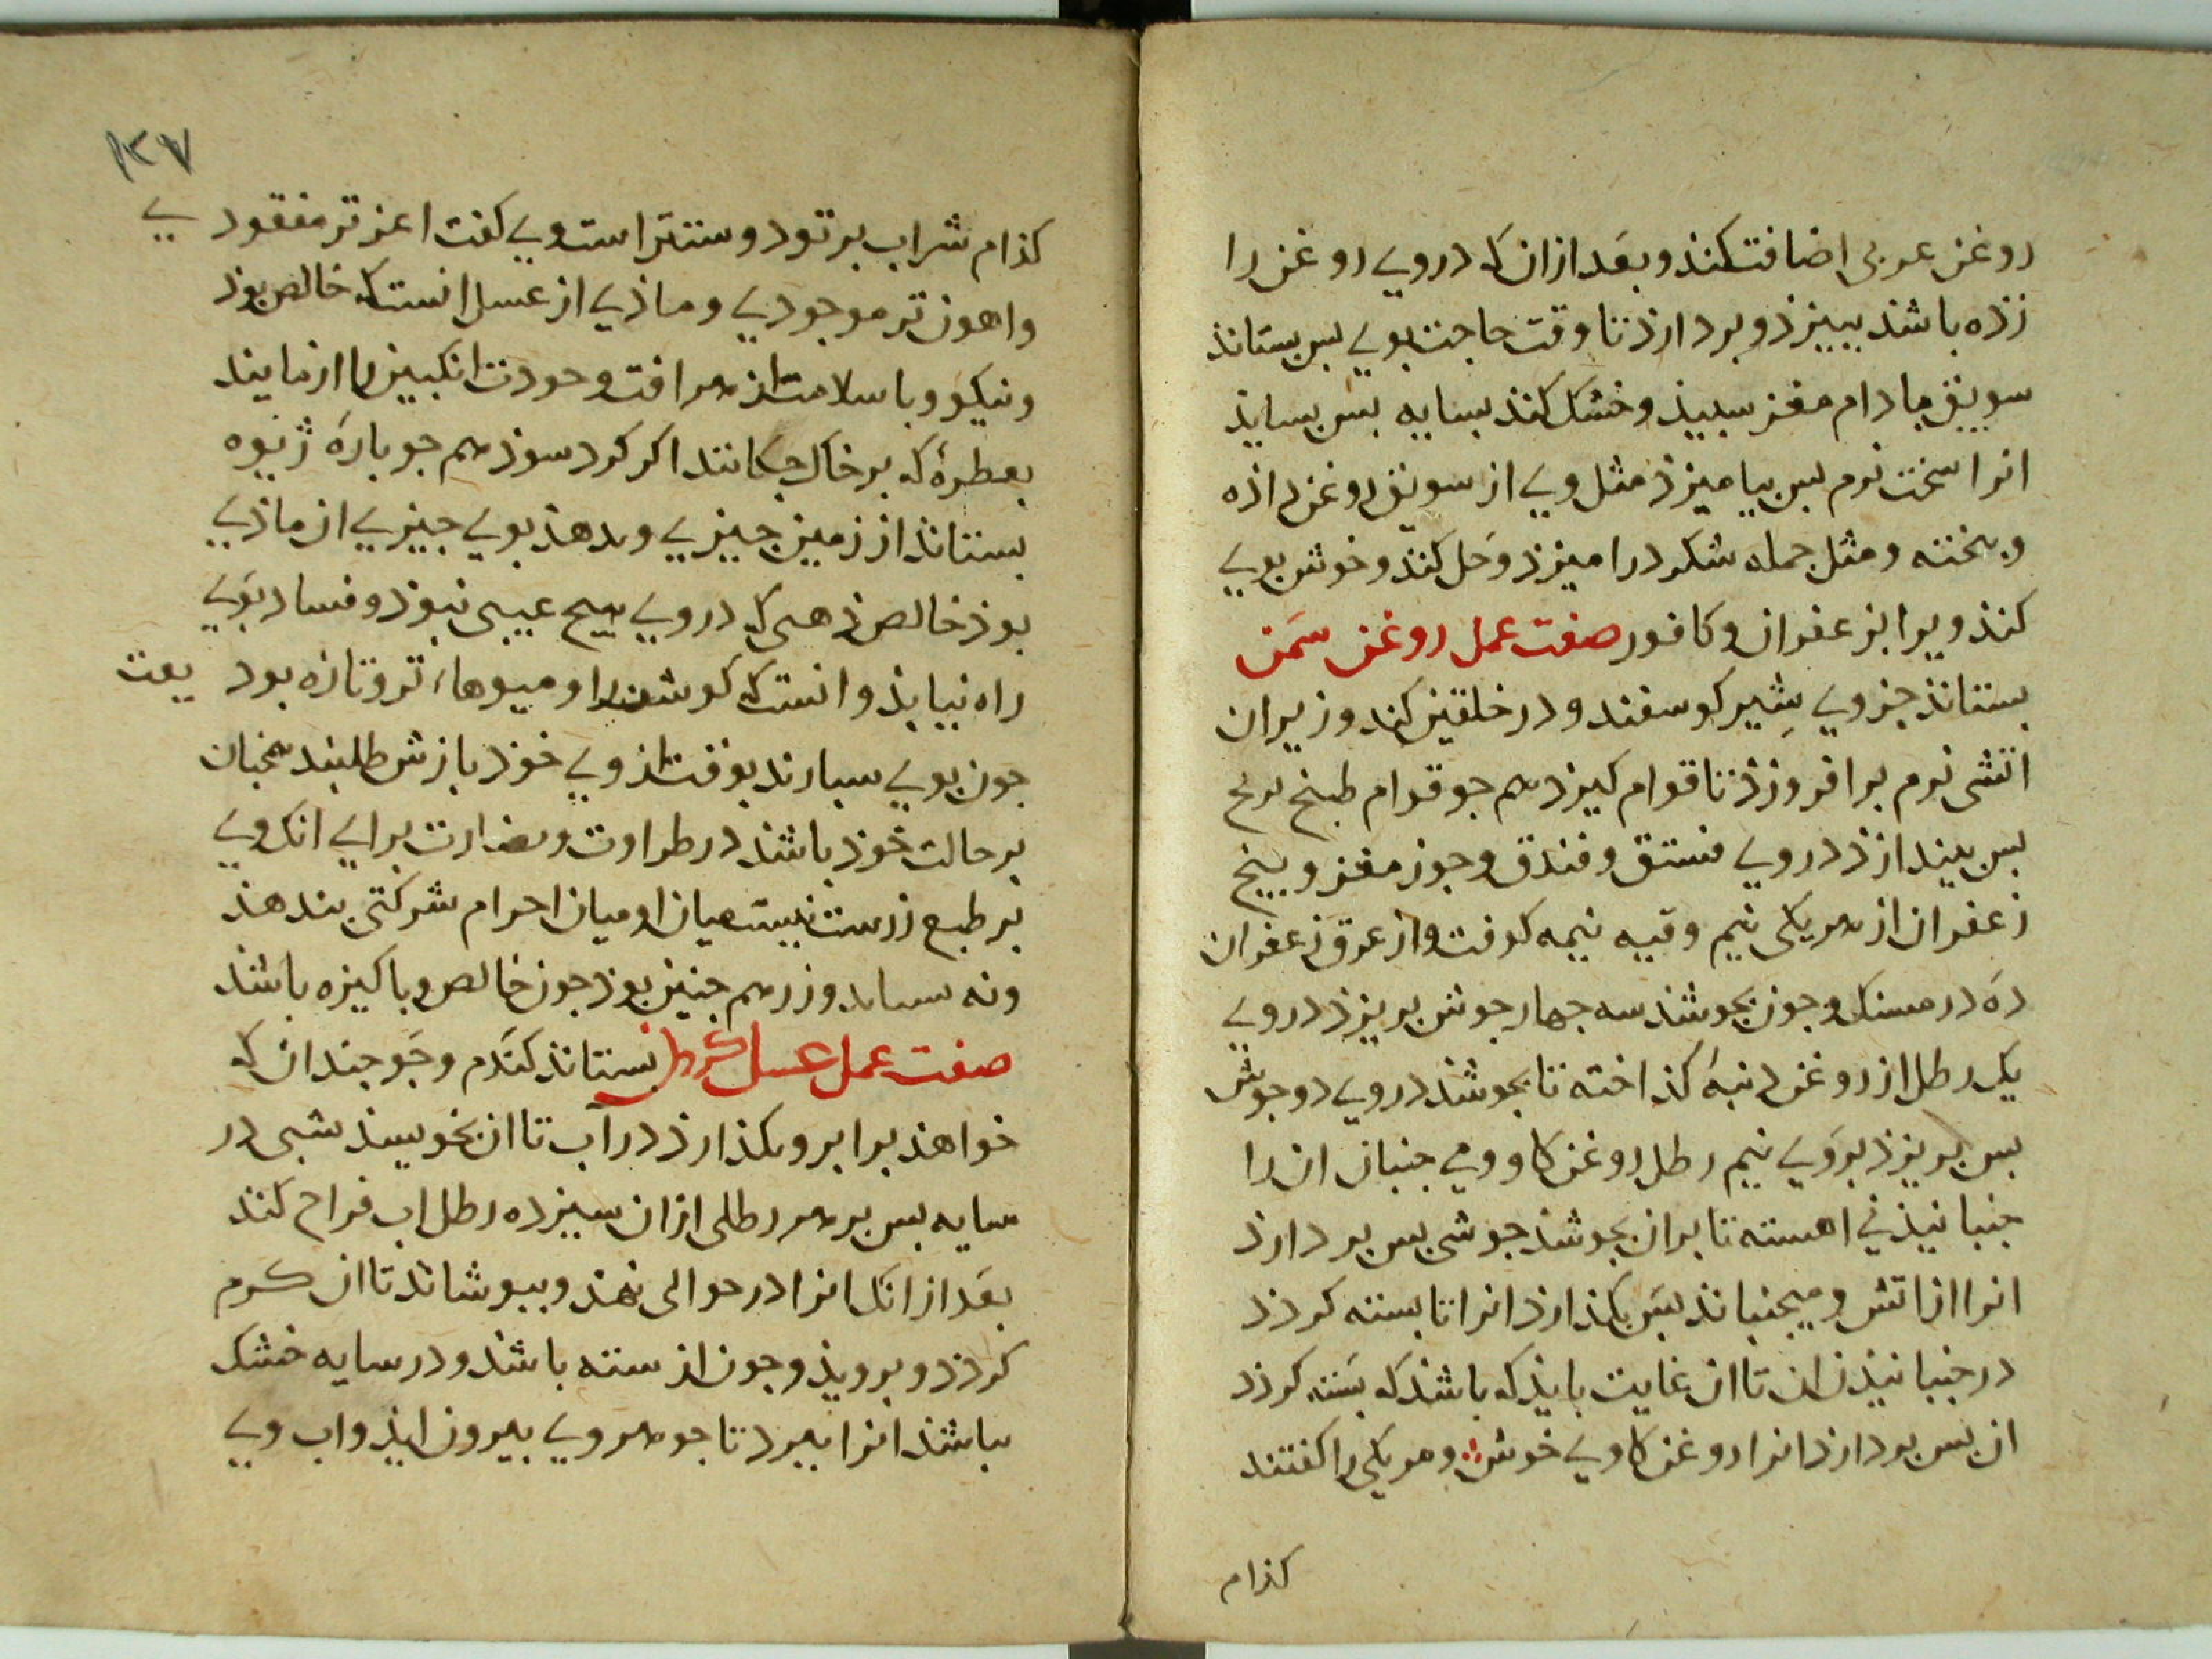 روغن عربی اضافت کند و بعد ازان که در وی روغن را
زده باشد ببیزد و بردارد تا وقت حاجت بوی بس بستاند
سویق بادام مغز سبید و خشک کند بسایه بس بساید
انرا سخت نرم بس بیامیزد مثل وی از سویق روغن داذه
و بخته و مثل جمله شکر درامیزد و حل کند و خوش بوی
کند ویرا بزعفران و کافور صفت عمل روغن سمن
بستاند جزوی شیر کوسفند و در خلقین کند و زیران
اتشی نرم برافروزد تا قوام کیرد هم جو قوام طبیخ برنج
بس بیندازد در وی فستق و فندق و جوز مغز و بیخ
زعفران از هر یکی نیم وقیه نیمه کوفت و از عرق زعفران
ده درمسنک و جون بجوشد سه جهار جوش بریزد در وی
یک رطل از روغن دنبهٔ کداخته تا بجوشد در وی دو جوش
بس بریزد بروی نیم رطل روغن کاو و می جنبان ان را
جنبانیذنی اهسته تا بران بجوشد جوشی بس بردارد
انرا از اتش و میجنباند بس بکذارد انرا تا بسته کردد
در جنبانیذن ان تا ان غایت باید که باشد که بسته کردد
ان بس بردارد انرا روغن کاوی خوش و هر یکی را کفتند
کذام
۱۳۷
کذام شراب بر تو دوستتر است وی کفت اعز تر مفقودی
و اهون تر موجودی و ماذی از عسل انست که خالص بوذ
و نیکو و با سلامت از هر افت و جودت انکبین را ازمایند
بقطرهٔ که بر خاک جکانند اکر کرد سوذ هم جو بارهٔ ژیوه
بستاند از زمین جیزی و بدهد بوی جیزی از ماذی
بوذ خالص ذهبی که در وی هیح عیبی نبوذ و فساد بوی
راه نیابد و انست که کوشت را و میوهاء تر و تازه بود یعت
جون بوی سبارند بوقت از وی خوذ بازش طلبند همجنان
بر حالت خود باشد در طراوت و نضارت برای انک وی
بر طبع زرست نیست میان او و میان اجرام شرکتی بندهذ
و نه ستاند و زر هم جنین بوذ جون خالص و باکیزه باشد
صفت عمل عسل کردن بستاند کندم و جو جندان که
خواهذ برابر و بکذارد در آب تا ان بخویسند شبی در
سایه بس بر هر رطلی ازان سیزده رطل اب فراح کند
بعد از انک انرا در حوالی نهد و ببوشاند تا ان کرم
کردد و بروید و جون از سته باشد و در سایه خشک
باشد انرا ببرد تا جوهر وی بیرون اید و اب وی